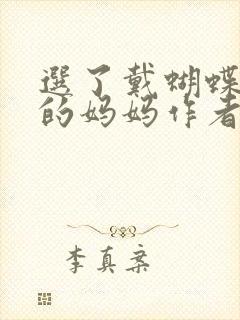 選了戴蝴蝶
的妈妈作者
李真案